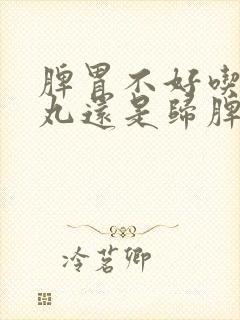 脾胃不好喫
丸還是歸脾
冷茗卿